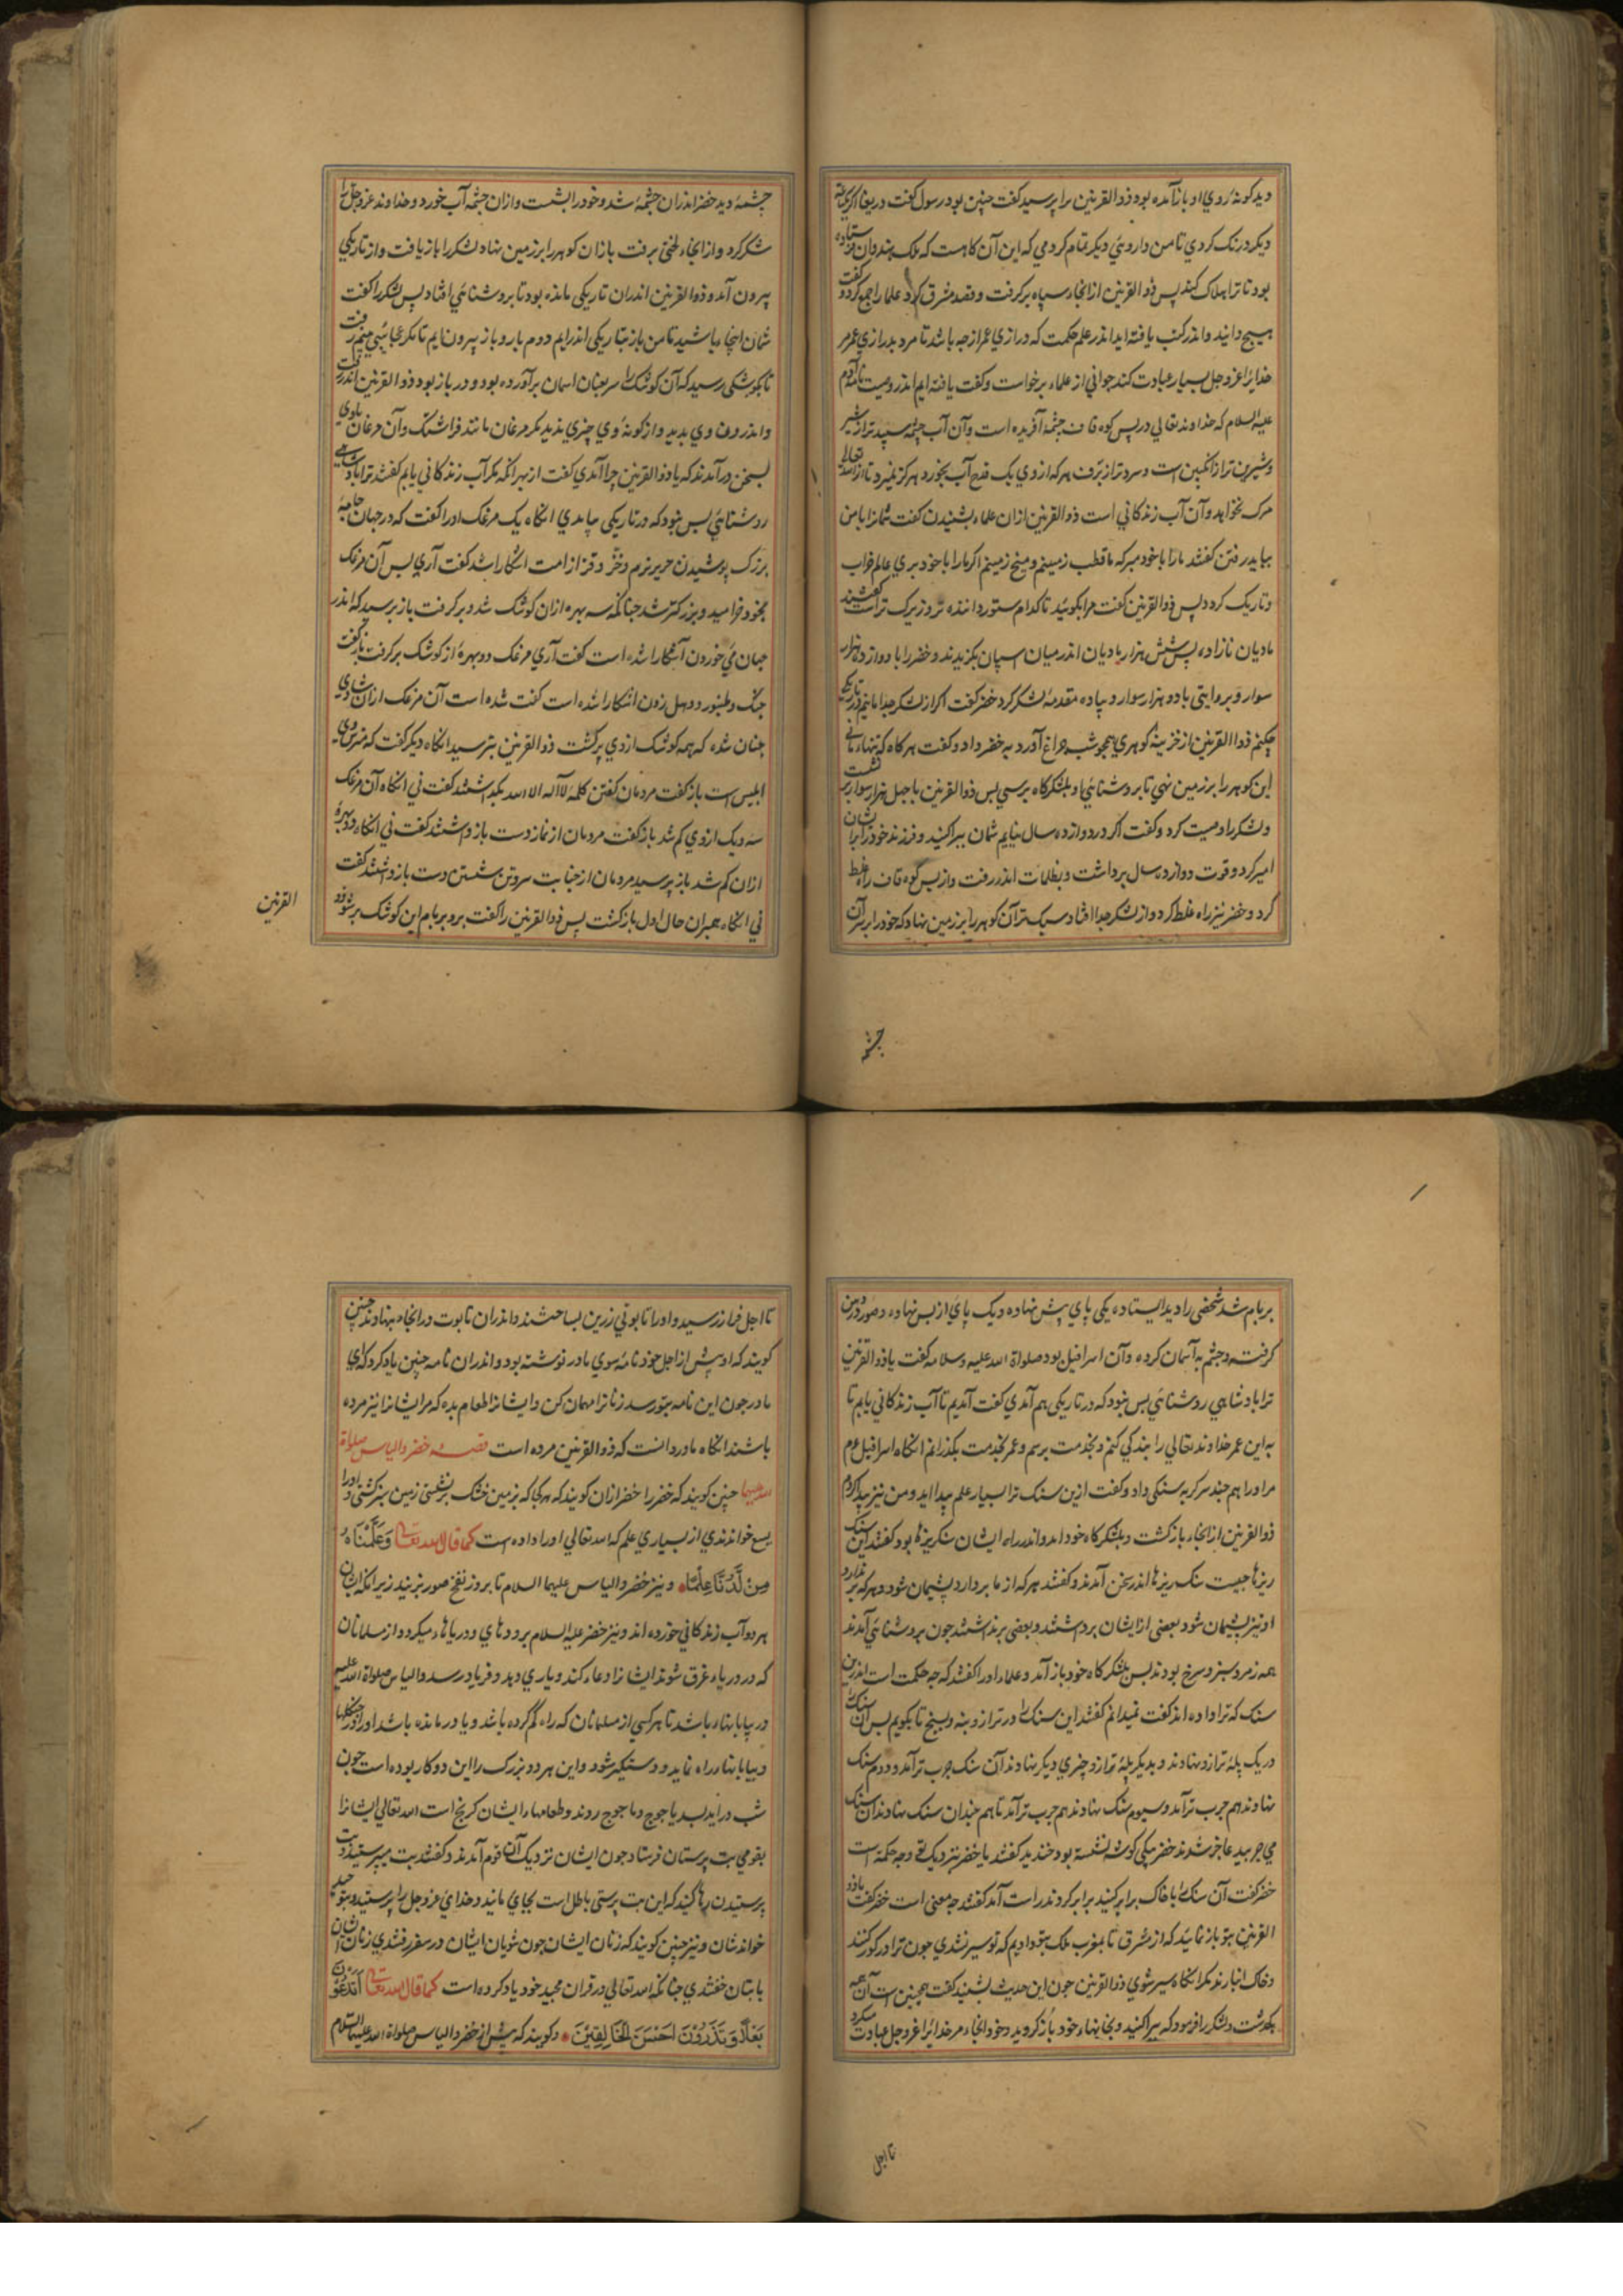 دید کونهٔ روي او باز آمده بود ذو القرنین مرا پرسید کفت چنین بود رسول کفت دریغا اکر یک
دیکر درنک کردي تا من داروئي دیکر تمام کردمي که این آن کاهست که ملک هندوان فرستاده
بود تا ترا هلاک کند پس ذو القرنین از انجا سپاه برکرفت و قصد مشرق کرد علما را جمع کرد و کفت
هیچ دانید و اندر کتب یافته اید اندر علم حکمت که درازي عمر از چه باشد تا مرد بدرازي عمر مر
خدایرا عزوجل بسیار عبادت کند جواني از علماء برخواست و کفت یافته ایم اندر وصیت نامه آدم
علیه السلام که خداوند تعالي در پس کوه قاف چشمهٔ آفریده است و آن آب چشمه سپیدتر از شیر
و شیرین تر از انکبین است و سردتر از برف هر که از وي یک قدح آب بخورد هرکز نمیرد تا از الله تعالي
مرک نخواهد و آن آب زندکاني است ذو القرنین ازان علماء بشنیدن کفت شمارا با من
بباید رفتن کفتند مارا با خود مبر که ما قطب زمینیم و میخ زمینیم اکر مارا با خود بري عالم خراب
و تاریک کردد پس ذو القرنین کفت مرا بکوئید تا کدام ستور داننده تر و زیرک تر است کفتند
مادیان نازاده پس شش هزار مادیان اندر میان اسپان بکزیدند و خضر را با دوازده هزار
سوار و بروایتی با دو هزار سوار و پیاده مقدمه لشکر کرد خضر کفت اکر از لشکر جدا مانیم در تاریکي
چکنم ذوا القرنین از خزینه کوهري همچو شب چراغ آورد به خضر داد و کفت هر کاه که تنها ماني
این کوهر را بر زمین نهي تا بروشنائي او بلشکرکاه برسي پس ذو القرنین با چهل هزار سوار برنشست
و لشکر را وصیت کرد و کفت اکر در دوازده سال نیایم شمان پراکنید و فرزند خود را بر ایشان
امیر کرد و قوت دوازده سال برداشت و بظلمات اندر رفت و از پس کوه قاف راه غلط
کرد و خضر نیز راه غلط کرد و از لشکر جدا افتاد سبکتر آن کوهر را بر زمین نهاد که خود را بر سر آن
چشمه
چشمهٔ دید خضر اندران چشمه شد و خود را بشست و ازان چشمه آب خورد و خداوند عزوجل را
شکر کرد و از انجاء لختي برفت بازان کوهر را بر زمین نهاد لشکر را باز یافت و از تاریکي
بیرون آمد و ذو القرنین اندران تاریکي مانده بود تا بروشنائي افتاد پس لشکر را کفت
شمان اینجا باشید تا من باز بتاریکي اندرایم دوم بار و باز بیرون ایم تا مکر عجائبي بینم رفت
تا بکوشکي رسید که آن کوشک را سر بعنان اسمان برآورده بود و در باز بود ذو القرنین اندر رفت
و اندرون وي بدید و از کونهٔ وي چیزي ندید مکر مرغان مانند فراشتک و آن مرغان باوي
بسخن درآمدند که یا ذو القرنین چرا آمدي کفت از بهر انکه مکر آب زندکاني یابم کفتند ترا بادشاهي
روشنائي بس نبود که در تاریکي بیامدي انکاه یک مرغک اورا کفت که در جهان جامهٔ
بزرک پوشیدن حریر نرم و خزّ و قز از امت اشکارا شد کفت آري پس آن مرغک
بخود فرامید و بزرکتر شد چنانکه سه بهره ازان کوشک شد و برکرفت باز پرسید که اندر
جهان مئ خوردن آشکارا شده است کفت آري مرغک دو بهرهٔ از کوشک برکرفت باز کفت
چنک و طنبور و دهل زدن اشکارا شده است کفت شده است آن مرغک ازان شادي
چنان شد که همه کوشک از وي پر کشت ذو القرنین بترسید انکاه دیکر کفت که مترس وي
ابلیس است باز کفت مردمان کفتن کلمه لا اله الا الله بکذاشتند کفت ني انکاه آن مرغک
سه یک از وي کم شد باز کفت مردمان از نماز دست بازداشتند کفت ني انکاه دو بهرهٔ
ازان کم شد باز پرسید مردمان از جنابت سر و تن شستن دست بازداشتند کفت
ني انکاه همبران حال اول بازکشت پس ذو القرنین را کفت برو بر بام این کوشک بر شو ذو
القرنین
بر بام شد شخصي را دید ایستاده یکي پاي پیش نهاده و یک پاي از پس نهاده و صور در دهن
کرفته و چشم به آسمان کرده و آن اسرافیل بود صلواة الله علیه و سلامه کفت یا ذو القرنین
ترا بادشاهي روشنائي بس نبود که در تاریکي هم آمدي کفت آمدیم تا آب زندکاني یابم تا
به این عمر خداوند تعالي را بندکي کنم و بخدمت برسم و عمر بخدمت بکذرانم انکاه اسرافیل عم
مر اورا هم چند سر کربه سنکي داد و کفت ازین سنک ترا بسیار علم پیدا اید و من نیز پیدا کردم
ذو القرنین از انجاء بازکشت و بلشکرکاه خود امد و اندر راه ایشان سنکریزها بود کفتند این سنک
ریزها چیست سنک ریزها اندر سخن آمدند و کفتند هر که از ما بردارد پشیمان شود و هر که بر ندارد
او نیز پشیمان شود بعضي از ایشان برداشتند و بعضي برنداشتند چون بروشنائي آمدند
همه زمرد سبز و سرخ بودند پس بلشکرکاه خود باز آمد و علماء اورا کفتند که چه حکمت است اندرین
سنک که ترا داده اند کفت نمیدانم کفتند این سنک را در ترازو بنه و بسنج تا بکویم پس آن سنک را
در یک پلهٔ ترازو نهادند و بدیکر پلهٔ ترازو چیزي دیکر نهادند آن سنک چرب تر آمد و دوم سنک
نهادند هم چرب تر آمد و سیوم سنک نهادند هم چرب تر آمد تا هم چندان سنک نهادند آن سنک
مي چربید عاجز شدند خضر بیکي کوشه نشسته بود خندید کفتند یا خضر نزدیک تو چه حکمة است
خضر کفت آن سنک را با خاک برابر کنید برابر کردند راست آمد کفتند چه معني است خضر کفت یا ذو
القرنین بتو باز نمائید که از مشرق تا بمغرب ملک بتو دادیم که تو سیر نشدي چون ترا در کور کنند
و خاک انبارند مکر انکاه سیر شوي ذو القرنین چون این حدیث بشنید کفت همچنین است آن همه
بکذاشت و لشکر را فرمود که پراکنید و بخانهاء خود بازکردید و خود انجاء مر خدایرا عزوجل عبادت میکرد
تا اجل
تا اجل فراز رسید و اورا تابوتي زرین بساختند و اندران تابوت در انجاء بنهادند چنین
کویند که او پیش از اجل خود نامهٔ سوي مادر نوشته بود و اندران نامه چنین یاد کرد که اي
مادر چون این نامه بتو رسد زنانرا مهمان کن و ایشانرا طعام بده که مر ایشانرا نیز مرده
باشند انکاه مادر دانست که ذو القرنین مرده است قصه خضر و الیاس صلواة
الله علیهما چنین کویند که خضر را خضر ازان کویند که هر کجا که بر زمین خشک بر نشستي زمین سبز کشتي و اورا
یسع خواندندي از بسیاري علم که الله تعالي اورا داده است کما قال الله تعالي وَعَلَّمْنَاهُ
مِنْ لَّدُنَّا عِلْمًا و نیز خضر و الیاس علیهما السلام تا بروز نفخ صور بزیند زیرا که ایشان
هر دو آب زندکاني خورده اند و نیز خضر علیه السلام بر رودهاي و دریاهاء میکردد و از مسلمانان
که در دریاء غرق شوند ایشانرا دعاء کند و یاري دهد و فریاد رسد و الیاس صلواة الله علیه
در بیابانهاء باشد تا هر کسي از مسلمانان که راه کم کرده باشد و یا درمانده باشد اورا در جنکلها
و بیابانها راه نماید و دستکیر شود و این هر دو بزرک را این دو کار بوده است چون
شب دراید بسد یاجوج و ماجوج روند و طعامهاء ایشان کرنج است الله تعالي ایشانرا
بقومي بت پرستان فرستاد چون ایشان نزدیک آن قوم آمدند و کفتند بت مپرستید و بت
پرستیدن رها کنید که این بت پرستي باطل است بجاي مانید و خداي عزوجل را پرستید و بتوحید
خواندشان و نیز چنین کویند که زنان ایشان چون شویان ایشان در سفر رفتندي زنان ایشان
با بتان خفتندي چنانکه الله تعالي در قران مجید خود یاد کرده است کما قال الله تعالي اَتَدْعُوْنَ
بَعْلًا وَّتَذَرُوْنَ اَحْسَنَ الْخَالِقِيْنَ و کویند که پیش از خضر و الیاس صلواة الله علیهما السلام